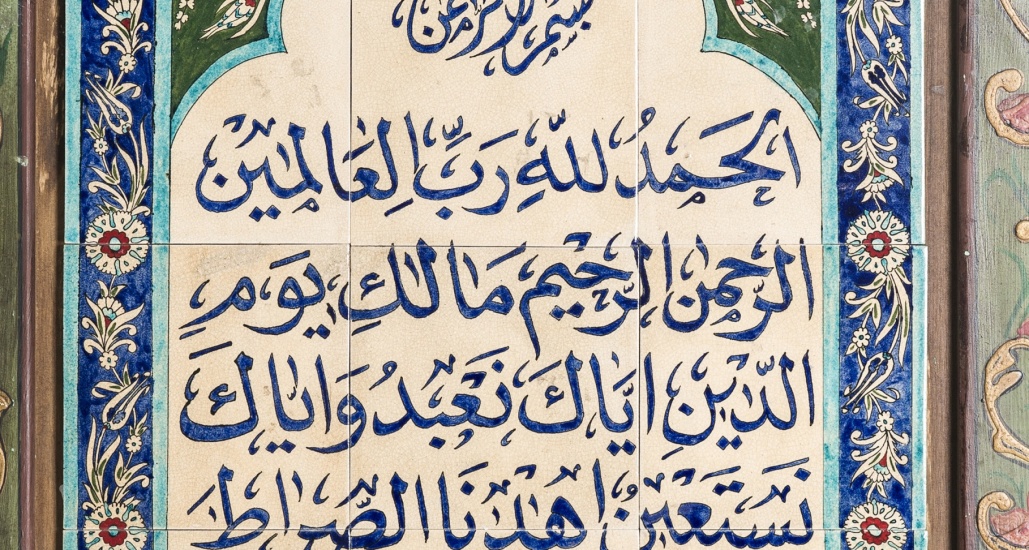 بسم الله الرحمن
الحَمدُ للهِ رَبِّ العَالمين
الرَّحمن الرَّحيم مَالكِ يَومِ
الدّينِ ايَّاكَ نَعَبدُ وَاياكَ
نَستَعينُ اهدنَا الصِّراطَ